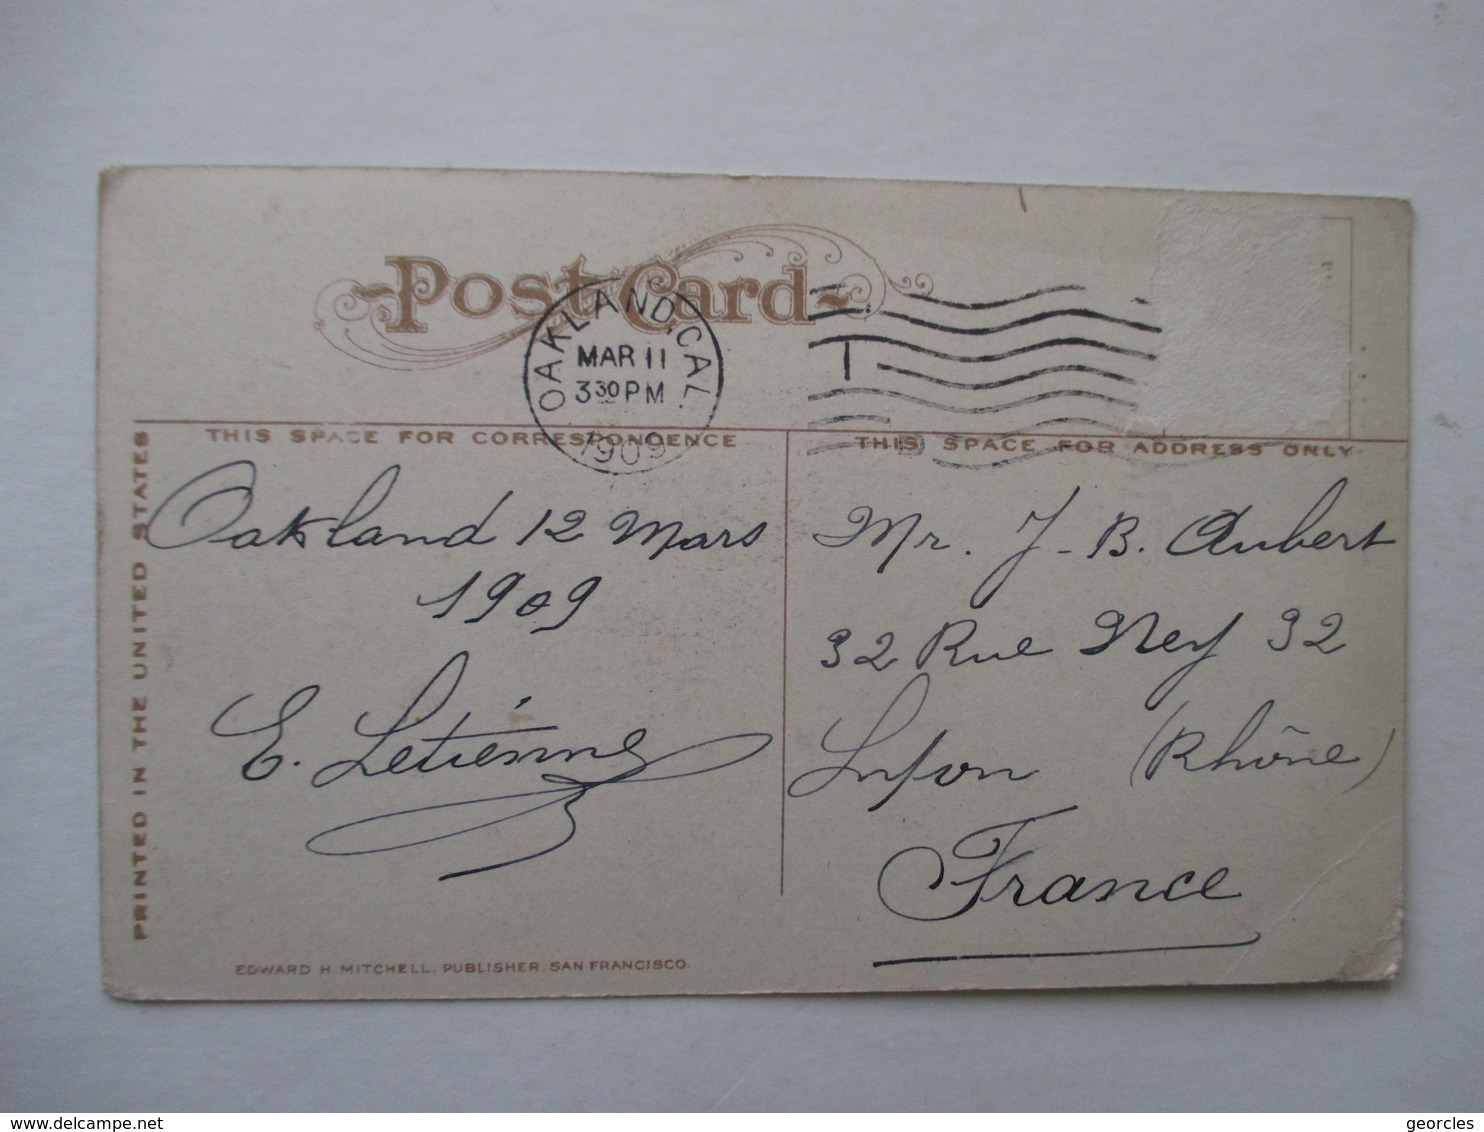 Post Card
OAKLAND, CAL.
MAR 11
3 30 PM
1909
THIS SPACE FOR CORRESPONDENCE
THIS SPACE FOR ADDRESS ONLY
PRINTED IN THE UNITED STATES
Oakland 12 Mars
1909
E. Letiénne
Mr. J-B. Aubert
32 Rue Ney 32
Lyon (Rhône)
France
EDWARD H. MITCHELL, PUBLISHER, SAN FRANCISCO.
www.delcampe.net
georcles